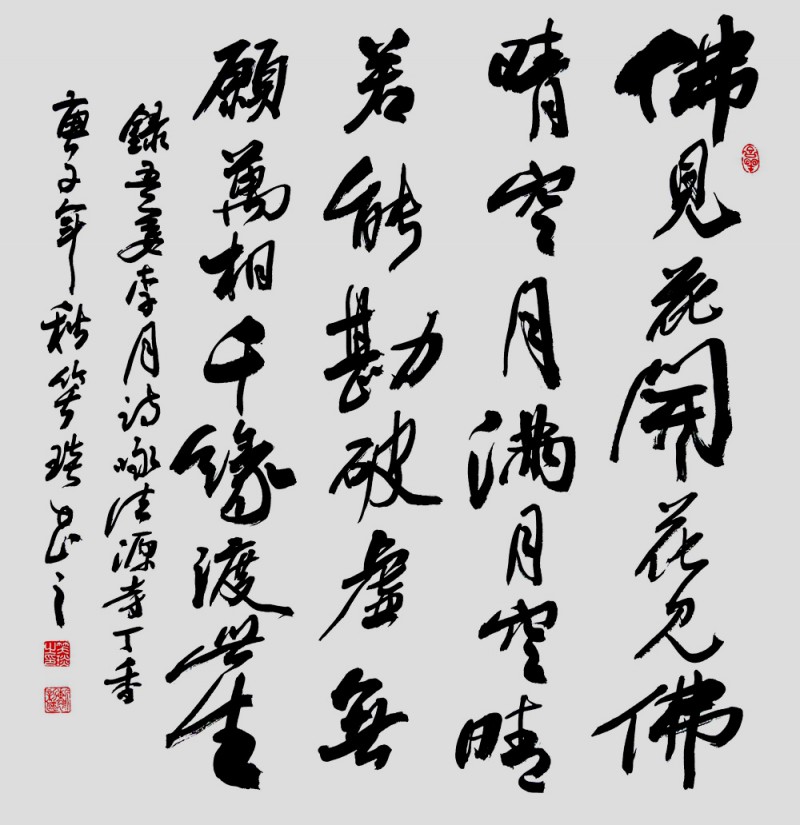 佛見花開花見佛
晴空月滿月空晴
若能勘破虛無
願萬相千緣渡無生
錄吾妻李月詩咏法源寺丁香
庚子年秋笑琰